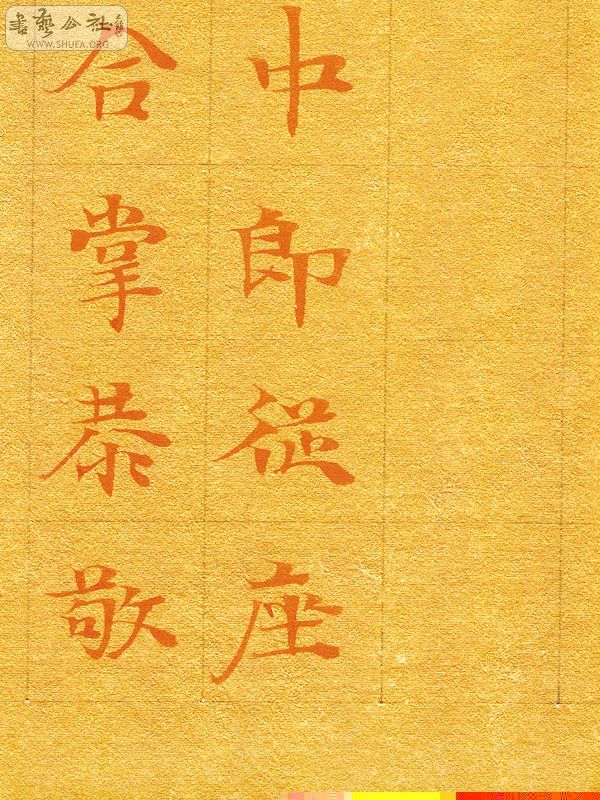 中即從座
合掌恭敬
書藝公社
WWW.SHUFA.ORG